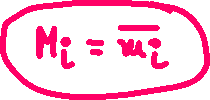 M_i = \overline{m_i}